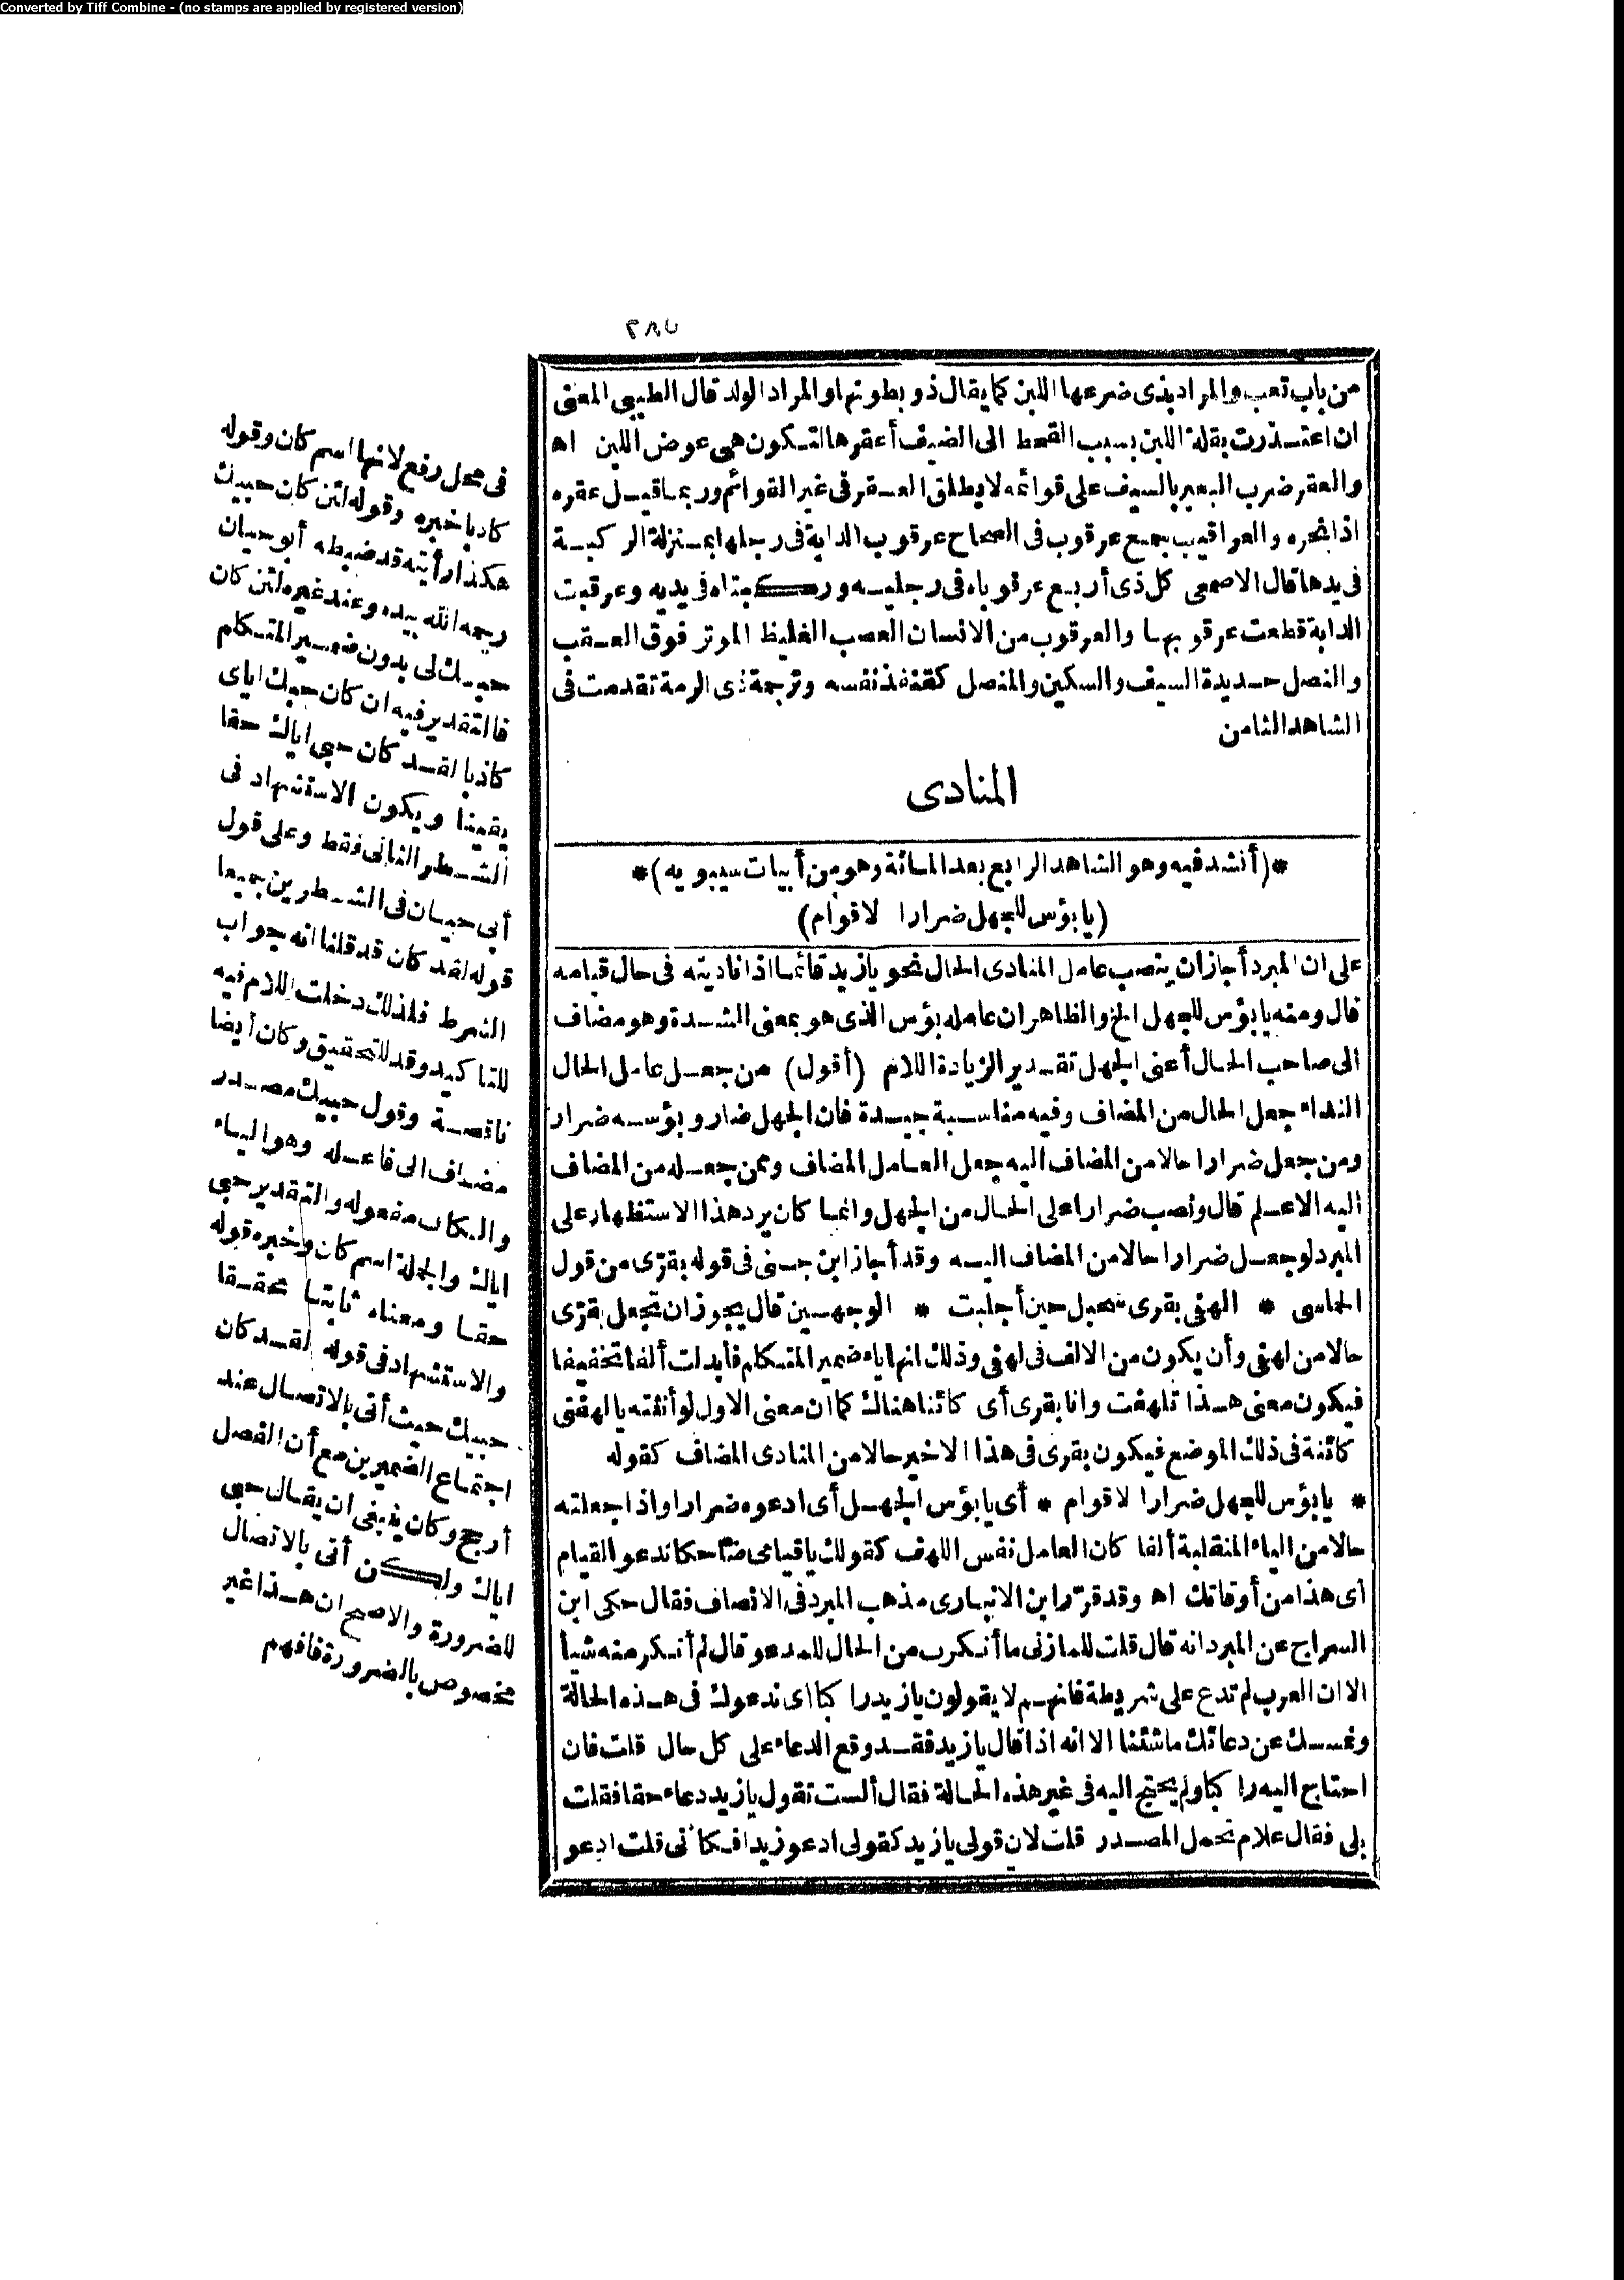 Converted by Tiff Combine - (no stamps are applied by registered version)
٢٨٥
من باب تعب والمراد بذى ضرعها اللبن كما يقال ذو بطونها والمراد الولد قال الطيبى المعنى
ان اعتذرت بقلة اللبن بسبب القحط الى الضيف أعقرها لتكون هى عوض اللبن اه
والعقر ضرب البعير بالسيف على قوائمه لا يطلق العقر فى غير القوائم وربما قيل عقره
اذا نحره والعراقيب جمع عرقوب فى الصحاح عرقوب الدابة فى رجلها بمنزلة الركبة
فى يدها قال الاصمعى كل ذى أربع عرقوباه فى رجليه وركبتاه فى يديه وعرقبت
الدابة قطعت عرقوبها والعرقوب من الانسان العصب الغليظ الموتر فوق العقب
والنصل حديدة السيف والسكين والمنصل كقنفذ نفسه وترجمة ذى الرمة تقدمت فى
الشاهد الثامن
المنادى
*(أنشد فيه وهو الشاهد الرابع بعد المائة وهو من أبيات سيبويه)*
(يا بؤس للجهل ضرارا لاقوام)
على ان المبرد أجاز ان ينصب عامل المنادى الحال نحو يا زيد قائما اذا ناديته فى حال قيامه
قال ومنه يا بؤس للجهل الخ والظاهر ان عامله بؤس الذى هو بمعنى الشدة وهو مضاف
الى صاحب الحال أعنى الجهل تقدير الزيادة اللام (أقول) من جعل عامل الحال
النداء جعل الحال من المضاف وفيه مناسبة جيدة فان الجهل ضار وبؤسه ضرار
ومن جعل ضرارا حالا من المضاف اليه جعل العامل المضاف وممن جعله من المضاف
اليه الاعلم قال ونصب ضرارا على الحال من الجهل وانما كان يرد هذا الاستظهار على
المبرد لو جعل ضرارا حالا من المضاف اليه وقد أجاز ابن جنى فى قوله بقرّى من قول
الحماسى * الهفى بقرى سحبل حين أجلبت * الوجهين قال يجوز ان تجعل بقرّى
حالا من لهفى وأن يكون من الالف فى لهفى وذلك انها ياء ضمير المتكلم فأبدلت ألفا تخفيفا
فيكون معنى هذا تلهفت وانا بقرى أى كائنا هناك كما ان معنى الاول لو أنثته يا لهفتى
كائنة فى ذلك الموضع فيكون بقرى فى هذا الاخير حالا من المنادى المضاف كقوله
* يا بؤس للجهل ضرارا لاقوام * أى يا بؤس الجهل أى ادعوه ضرارا واذا جعلته
حالا من الياء المنقلبة ألفا كان العامل نفس اللهف كقولك يا قيامى ضاحكا ندعو القيام
أى هذا من أوقاتك اه وقد قرّر ابن الانبارى مذهب المبرد فى الانصاف فقال حكى ابن
السراج عن المبرد انه قال قلت للمازنى ما أنكرت من الحال للمدعو قال لم أنكر منه شيأ
الا ان العرب لم تدع على شريطة فانهم لا يقولون يا زيد راكبا أى ندعوك فى هذه الحالة
ونمسك عن دعائك ماشئنا الا انه اذا قال يا زيد فقد وقع الدعاء على كل حال قلت فان
احتاج اليه راكبا ولم يحتج اليه فى غير هذه الحالة فقال ألست تقول يا زيد دعاء حقا فقلت
بلى فقال علام تحمل المصدر قلت لان قولى يا زيد كقولى ادعو زيدا فكأنى قلت ادعو
فى محل رفع لانها اسم كان وقوله
كاذبا خبره وقوله لئن كان حبيك
هكذا رأيته قد ضبطه أبو حيان
رحمه الله بيده وعند غيره لئن كان
حبك لى بدون ضمير المتكلم
فالتقدير فيه ان كان حبك اياى
كاذبا لقد كان حبى اياك حقا
يقينا ويكون الاستشهاد فى
الشطر الثانى فقط وعلى قول
أبى حيان فى الشطرين جميعا
قوله لقد كان قد قلنا انه جواب
الشرط فلذلك دخلت اللام فيه
للتاكيد وقد للتحقيق وكان أيضا
ناقصة وقول حبيك مصدر
مضاف الى فاعله وهو الياء
والكاف مفعوله والتقدير حبى
اياك والجملة اسم كان وخبره قوله
حقا ومعناه ثابتا محققا
والاستشهاد فى قوله لقد كان
حبيك حيث أتى بالاتصال عند
اجتماع الضميرين مع أن الفصل
أرجح وكان ينبغى ان يقال حبى
اياك ولكن أتى بالاتصال
للضرورة والاصح ان هذا غير
مخصوص بالضرورة فافهم